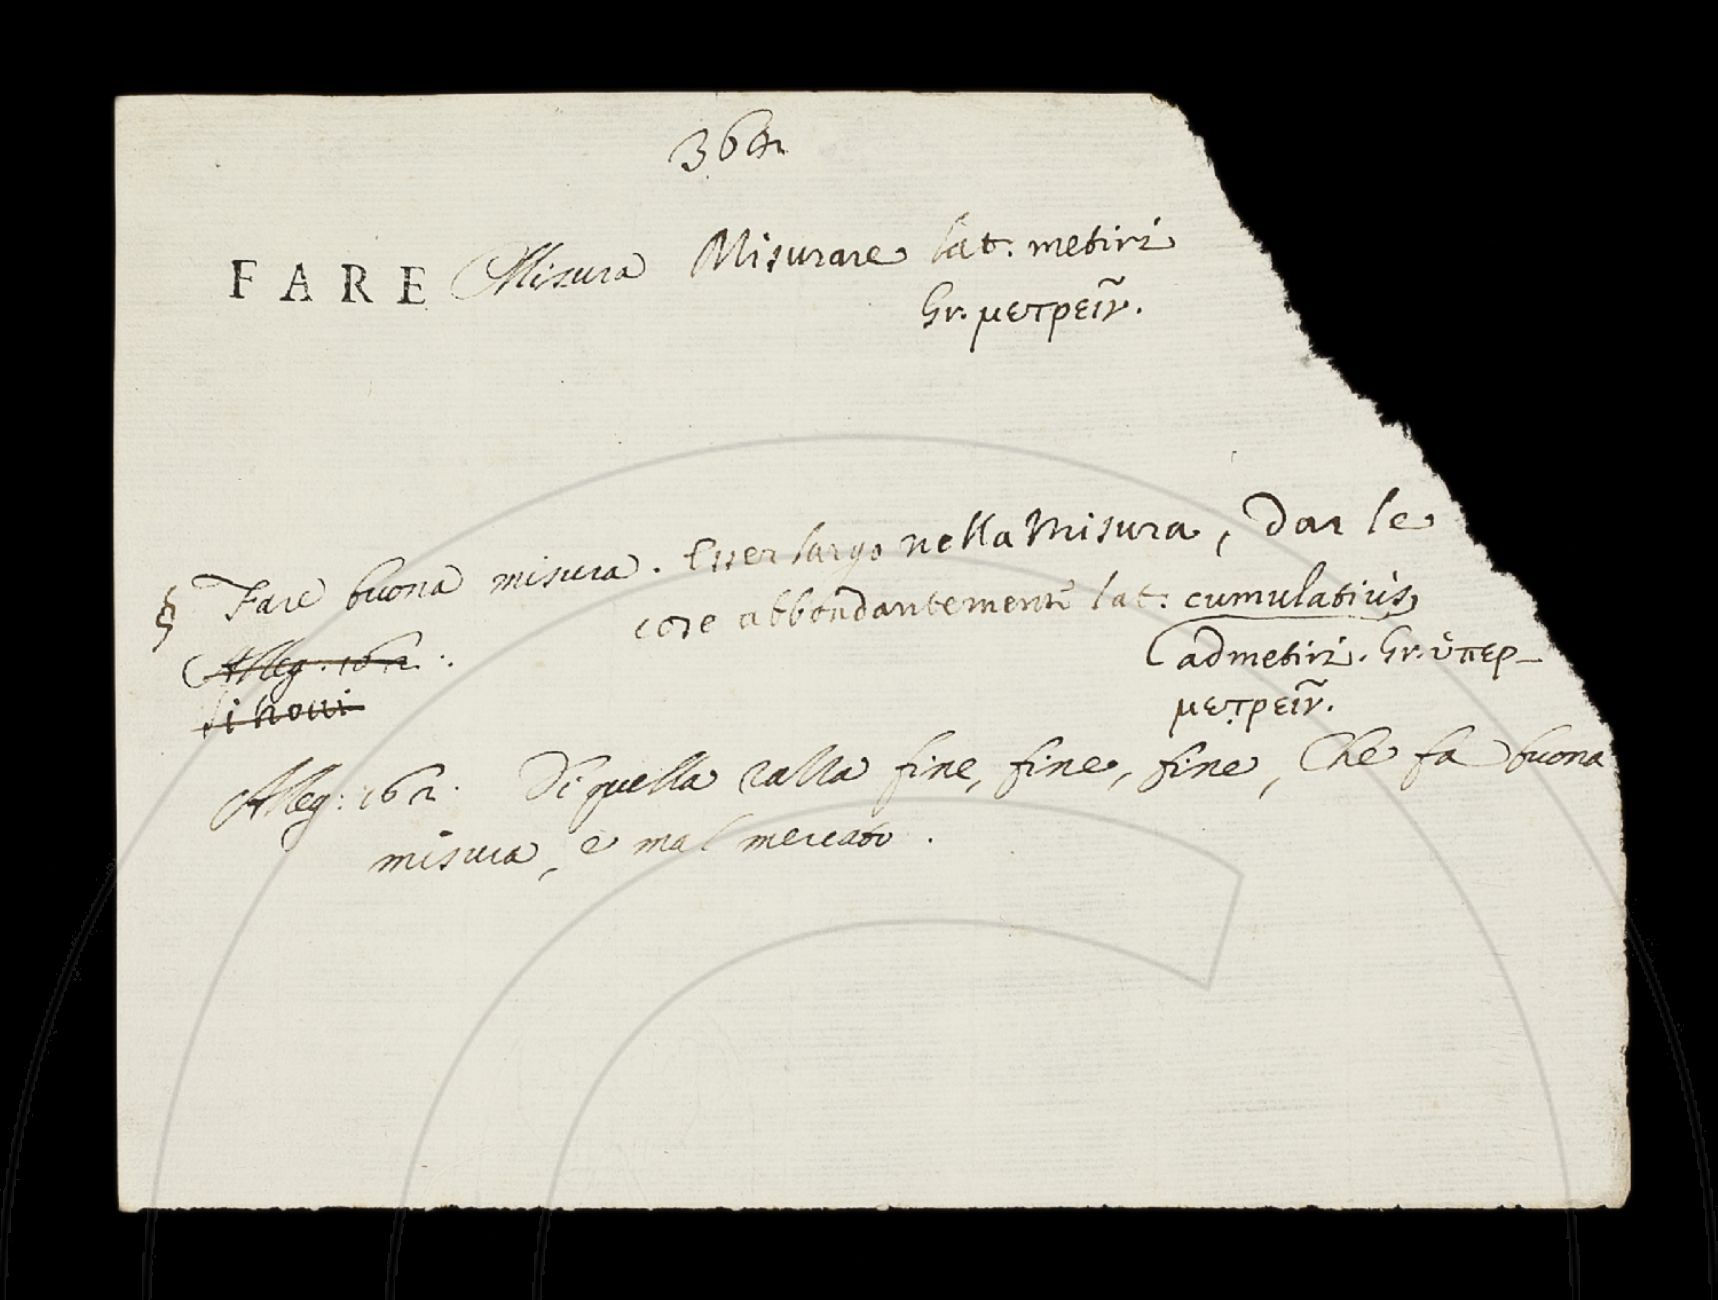 36
FARE Misura Misurare lat: metiri
Gr. μετρεῖν.
§ Fare buona misura. Esser largo nella Misura, Dar le
cose abbondantemente lat: cumulatiùs
admetiri. Gr. ὑπερ-
Alleg. 162.
μετρεῖν.
Si trovi
Alleg: 162. Di quella ralla fine, fine, fine, Che fa buona
misura, e mal mercato.